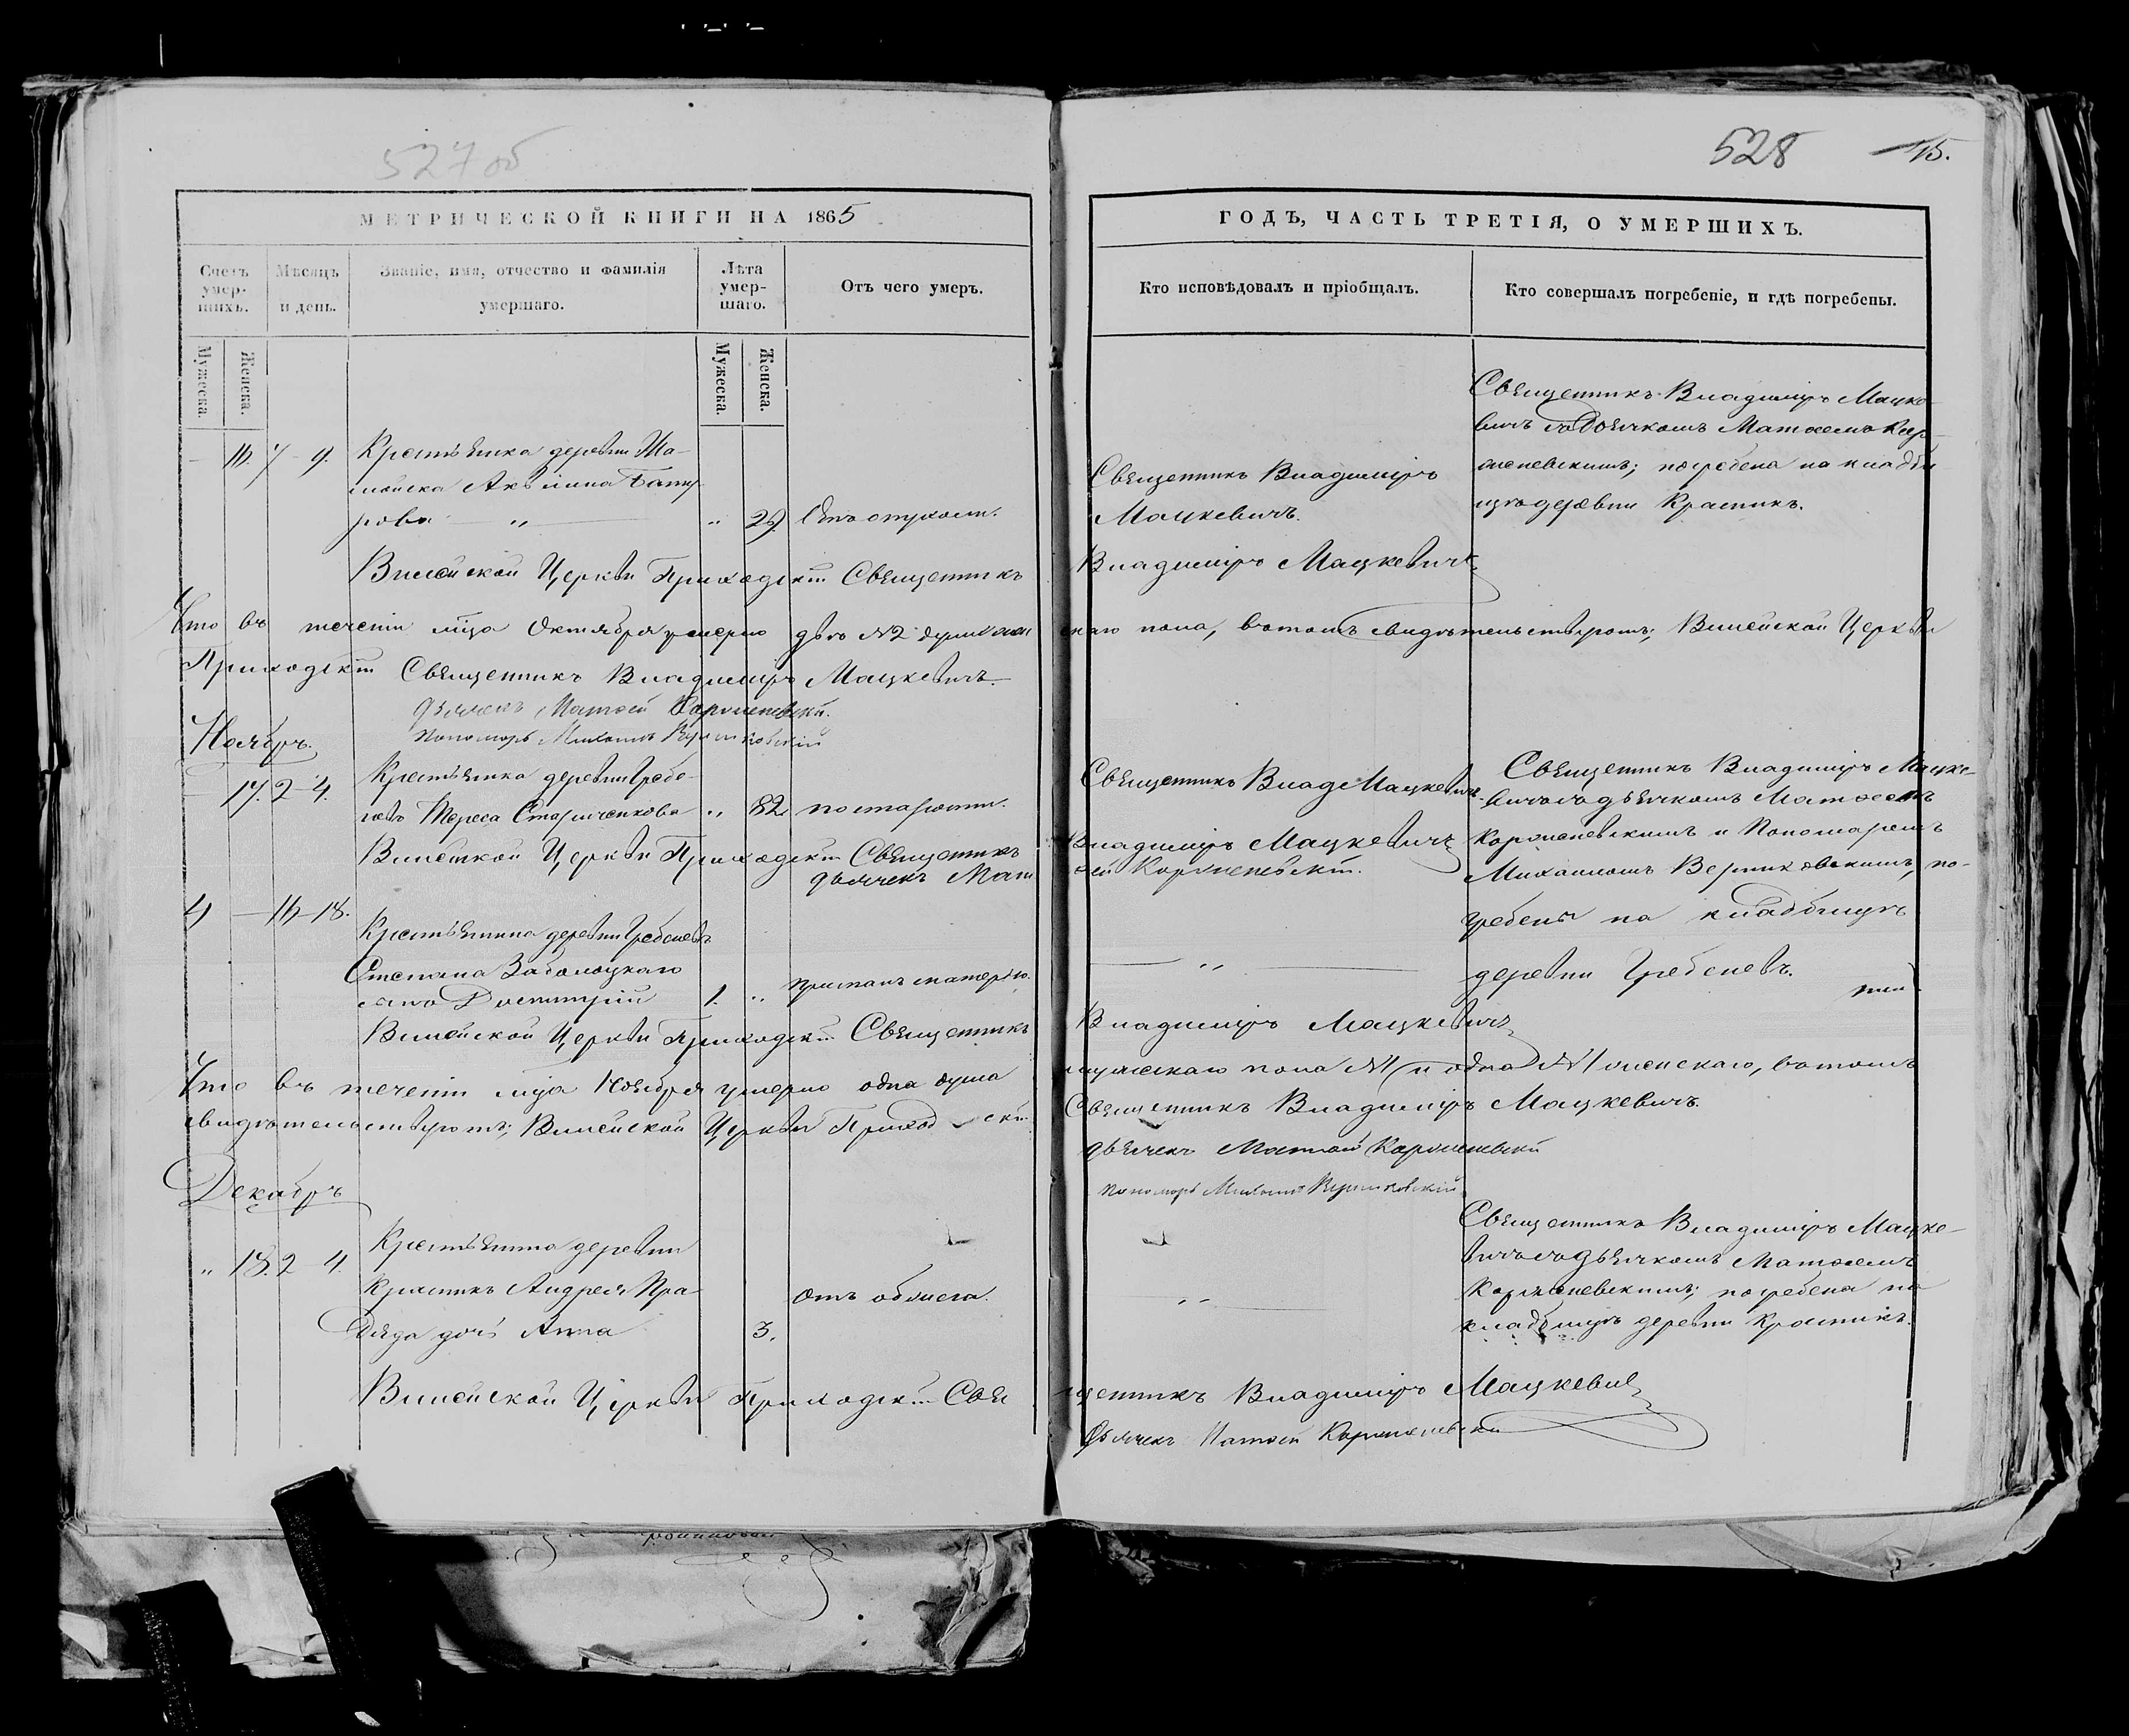 527 об
528 15.
МЕТРИЧЕСКОЙ КНИГИ НА 1865
ГОДЪ, ЧАСТЬ ТРЕТІЯ, О УМЕРШИХЪ.
Счетъ умер-шихъ.
Мѣсяцъ и день.
Званіе, имя, отчество и фамилія умершаго.
Лѣта умер-шаго.
Отъ чего умеръ.
Кто исповѣдовалъ и пріобщалъ.
Кто совершалъ погребеніе, и гдѣ погребены.
Мужеска.
Женска.
Мужеска.
Женска.
— 16. 7-9. Крестьянка деревни
Акилина
рова " — " 29. Отъ опухоли.
Священникъ Владиміръ
Мацкевичъ.
Священникъ Владиміръ Мацке-
вичъ съ Дьячкомъ Матѳеемъ Кар-
женевскимъ; погребена на кладби-
щѣ деревни Красникъ.
Вилейской Церкви Приходскій Священникъ Владиміръ Мацкевичъ
Что въ теченіи мѣца Октября умерло двѣ №2 души женскаго пола, въ томъ свидѣтельствуютъ; Вилейской Церкви
Приходскій Священникъ Владиміръ Мацкевичъ.
Дьячекъ Матѳей Карженевскій.
Пономарь Михаилъ
Ноябрь.
— 17. 2-4. Крестьянка деревни Гребе-
невъ Тереса Стариченкова " 82 по старости.
Священникъ Влад Мацкевичъ.
Священникъ Владиміръ Мацке-
вичъ съ дьячкомъ Матѳеемъ
Карженевскимъ и Пономаремъ
Михаиломъ по-
гребены на кладбищѣ
деревни Гребеневъ.
Вилейской Церкви Приходскій Священникъ Владиміръ Мацкевичъ
дьячекъ Матѳей Карженевскій.
4 — 16-18. Крестьянина деревни Гребеневъ
Степана Заболоцкаго
сынъ Дмитрій 1. "
— " —
Вилейской Церкви Приходскій Священникъ Владиміръ Мацкевичъ
Что въ теченіи мѣца Ноября умерло одна душа мужескаго пола №1 и одна №1 женскаго, въ томъ
свидѣтельствуютъ; Вилейской Церкви Приходскій Священникъ Владиміръ Мацкевичъ.
дьячекъ Матѳей Карженевскій
Пономарь Михаилъ
Декабрь
" 18. 2 4. Крестьянина деревни
Красникъ Андрея Пра-
дѣда дочь Анна 3. отъ обжога.
— " —
Священникъ Владиміръ Мацке-
вичъ съ дьячкомъ Матѳеемъ
Карженевскимъ; погребена на
кладбищѣ деревни Красникъ.
Вилейской Церкви Приходскій Священникъ Владиміръ Мацкевичъ
Дьячекъ Матѳей Карженевскій